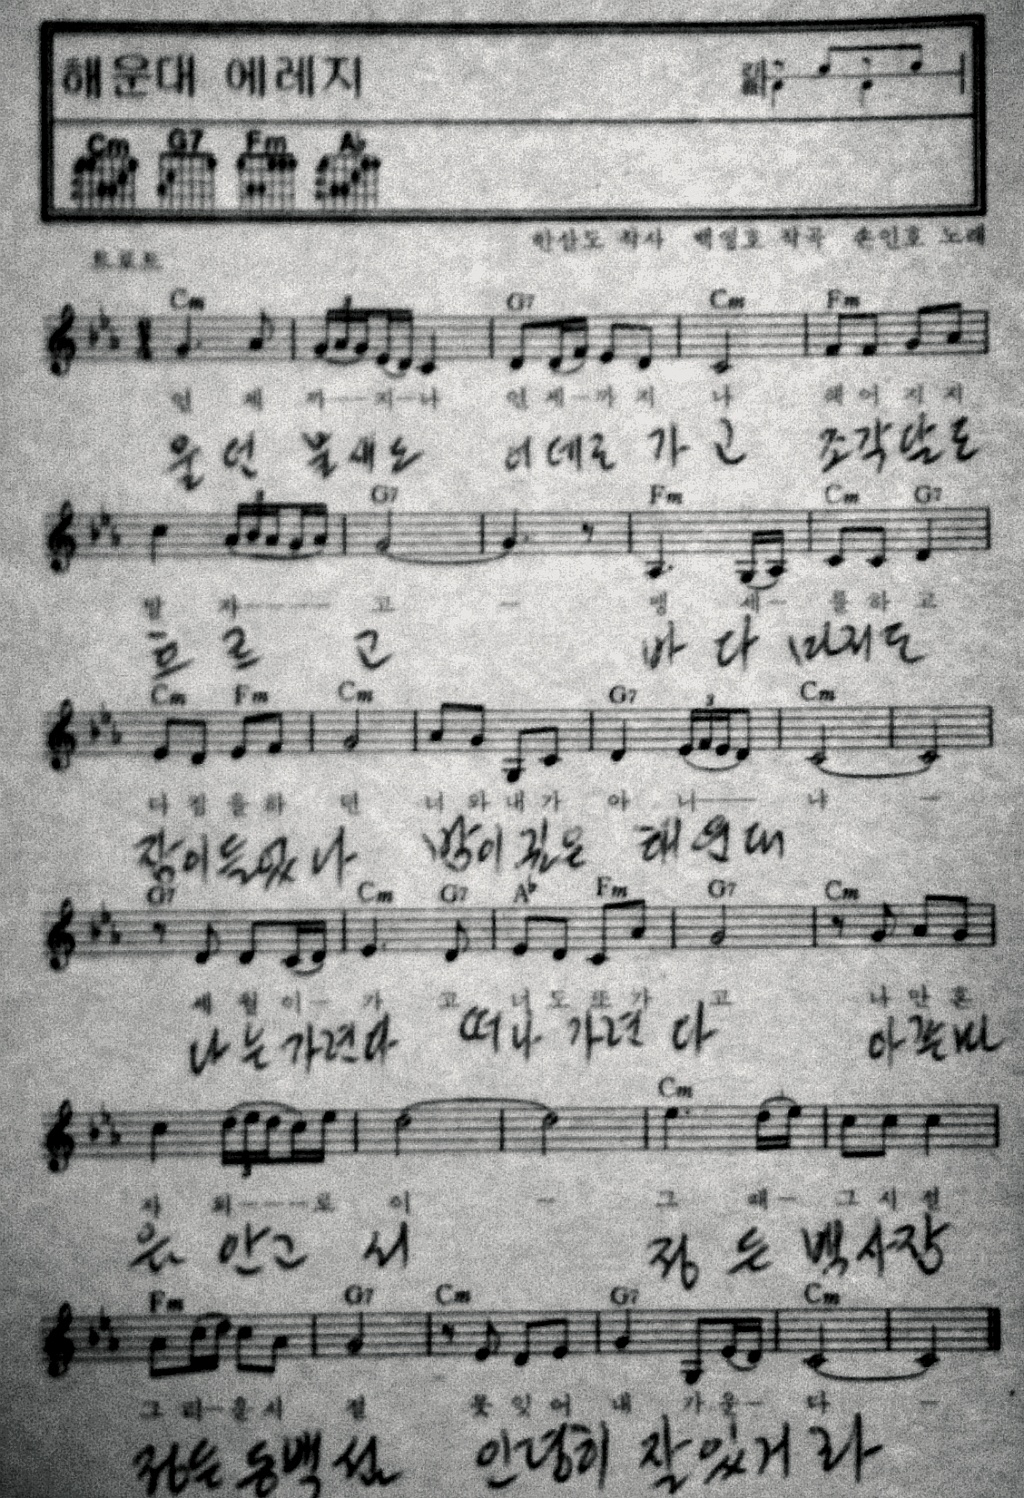 해운대 에레지
Cm G7 Fm A♭
한산도 작사 백영호 작곡 손인호 노래
트로트
Cm G7 Cm Fm
언 제 까---지-나 언 제-까 지 나 헤 어 지 지
울 던 물새도 어데로 가 고 조각달도
3 G7 Fm Cm G7
말 자---- 고 - 맹 세- 를 하 고
흐 르 고 바 다 마저도
Cm Fm Cm G7 3 Cm
다 짐 을 하 던 너 와 내 가 아 니--- 냐 -
잠이들었나 밤이 깊은 해운대
G7 Cm G7 A♭ Fm G7 Cm
세 월 이- 가 고 너 도 또 가 고 나 만 혼
나는 가련다 떠나 가련 다
Cm
자 외---로 이 - 그 때- 그 시 절
안고 서 정 든 백사장
Fm G7 Cm G7 Cm
그 리-운 시 절 못 잊 어 내 가 운- 다 -
정든 동백섬 안녕히 잘있거 라